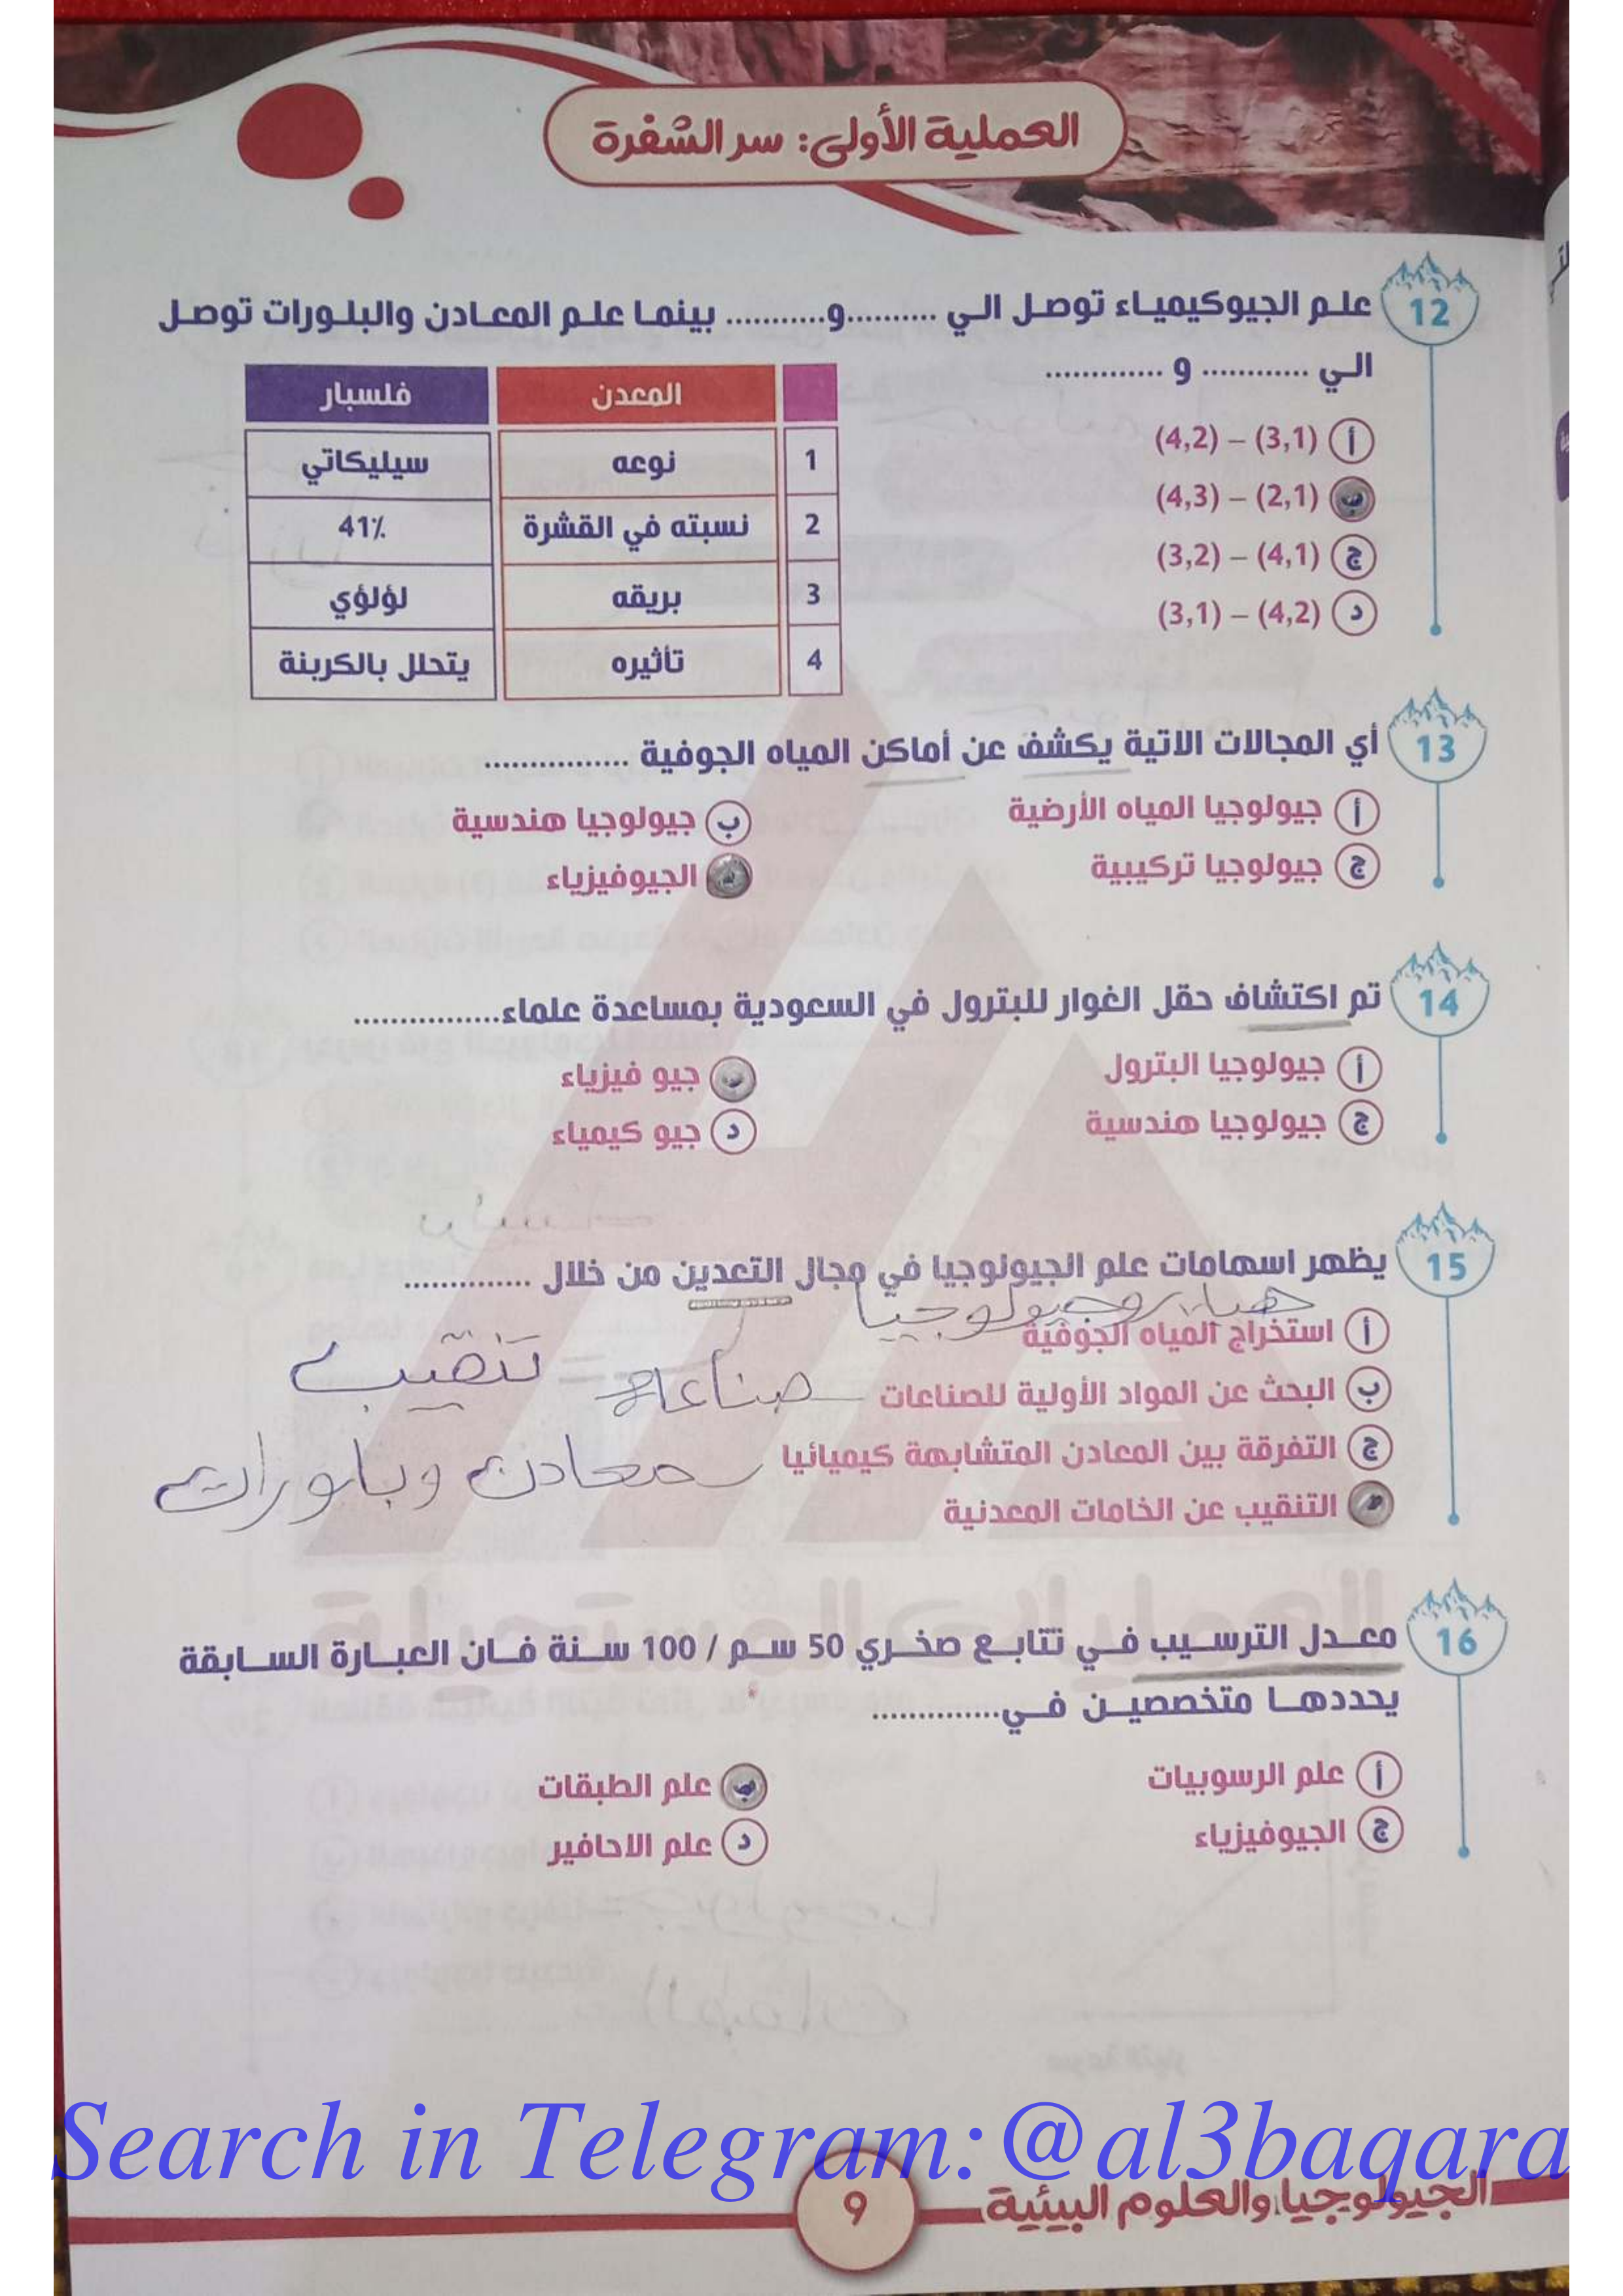 العملية الأولى: سر الشفرة
12
علم الجيوكيمياء توصل الي ..........و........... بينما علم المعادن والبلورات توصل
الي ............ و .............
أ (3,1) – (4,2)
ب (2,1) – (4,3)
ج (4,1) – (3,2)
د (4,2) – (3,1)
المعدن فلسبار
1 نوعه سيليكاتي
2 نسبته في القشرة 41٪
3 بريقه لؤلؤي
4 تأثيره يتحلل بالكربنة
13
أي المجالات الاتية يكشف عن أماكن المياه الجوفية ................
أ جيولوجيا المياه الأرضية
ب جيولوجيا هندسية
ج جيولوجيا تركيبية
د الجيوفيزياء
14
تم اكتشاف حقل الغوار للبترول في السعودية بمساعدة علماء................
أ جيولوجيا البترول
ب جيو فيزياء
ج جيولوجيا هندسية
د جيو كيمياء
15
يظهر اسهامات علم الجيولوجيا في مجال التعدين من خلال ..............
هيدروجيولوجيا
أ استخراج المياه الجوفية
ب البحث عن المواد الأولية للصناعات
صناعة = تنقيب
ج التفرقة بين المعادن المتشابهة كيميائيا
معادن وبلورات
د التنقيب عن الخامات المعدنية
16
معدل الترسيب في تتابع صخري 50 سم / 100 سنة فان العبارة السابقة
يحددها متخصصين في..............
أ علم الرسوبيات
ب علم الطبقات
ج الجيوفيزياء
د علم الاحافير
Search in Telegram:@al3baqara
الجيولوجيا والعلوم البيئية
9